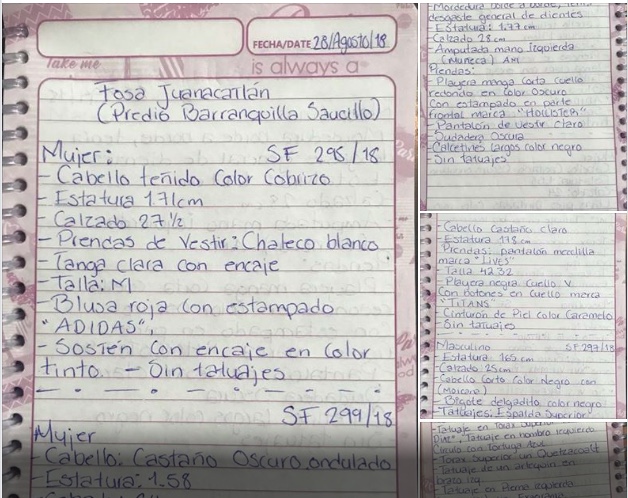 FECHA/DATE 28/Agosto/18
Take me
is always a
Fosa Juanacatlán
(Predio Barranquilla Saucillo)
Mujer: SF 298/18
- Cabello teñido Color Cobrizo
- Estatura 171cm
- Calzado 27 1/2
- Prendas de Vestir: Chaleco blanco
- Tanga clara con encaje
- Talla: M
- Blusa roja con estampado
"ADIDAS".
- Sosten con encaje en Color
tinto. - Sin tatuajes
SF 299/18
Mujer
- Cabello: Castaño Oscuro, ondulado
- Estatura: 1.58
- Mordedura borde a borde,
desgaste general de dientes
- Estatura: 1.77 cm
- Calzado 28 cm
- Amputada mano Izquierda
(Muñeca) AM
Prendas:
- Playera manga Corta Cuello
redondo en Color Oscuro
Con estampado en parte
frontal marca "HOLLISTER"
- Pantalón de vestir Claro
- Sudadera Oscura
- Calcetines largos color negro
- Sin tatuajes
- Cabello Castaño claro
- Estatura 178 cm
- Prendas: pantalón mezclilla
marca "LIVES"
- Talla 42 32
- Playera negra Cuello V
Con botones en Cuello marca
"TITANS"
- Cinturón de Piel Color Caramelo
- Sin tatuajes
Masculino SF 297/18
- Estatura 165 cm
- Calzado 25 cm
- Cabello Corto Color Negro con
- Bigote delgadito color negro
- Tatuajes: Espalda Superior
- Tatuaje en Torax
Tatuaje en hombro izquierdo
Circulo con Tortuga Azul
- Torax Superior un Quetzalcoatl
- Tatuaje de un arlequin en
brazo izq.
- Tatuaje en Pierna izquierda